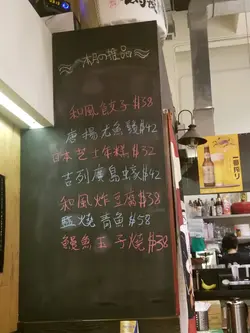 本月の推品
和風餃子 $38
唐揚尤魚鬚 $42
日本芝士年糕 $32
吉列廣島蠔 $42
和風炸豆腐 $38
鹽燒青魚 $58
鰻魚玉子燒 $38
一番搾り